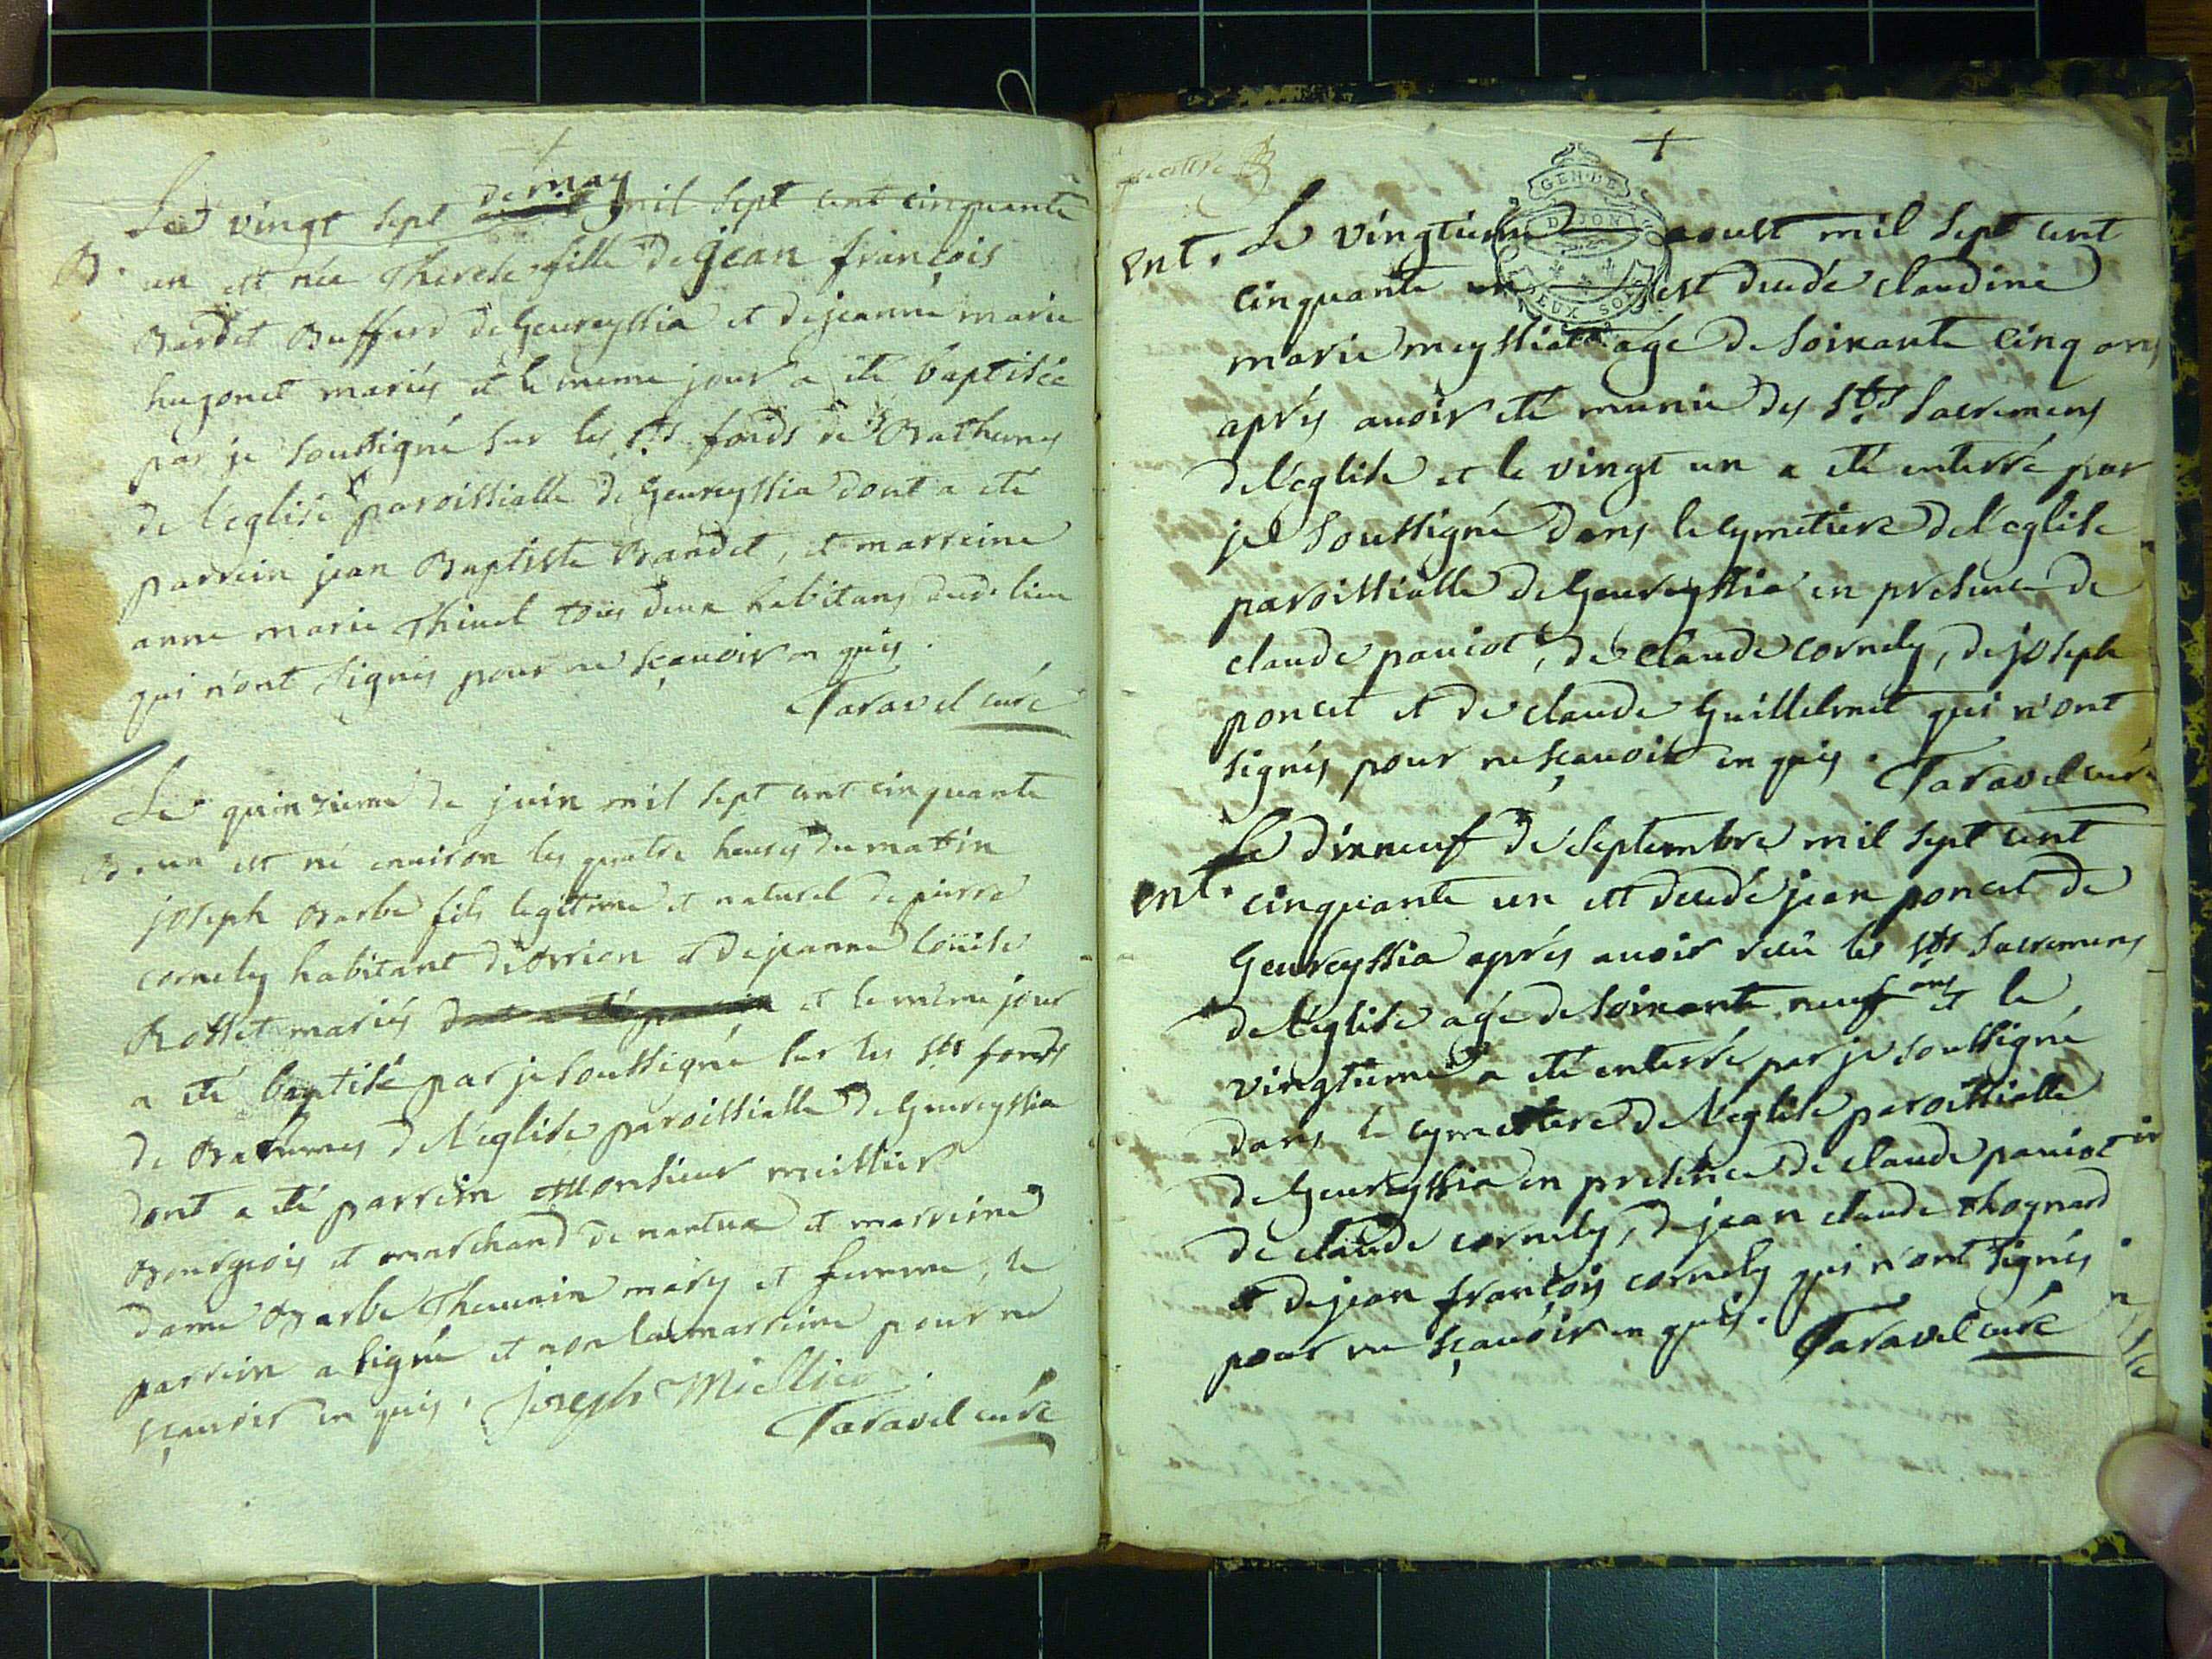 Le vingt sept de may mil sept cent cinquante
B. un est née Therese fille de jean françois
Bardet Bufferd de geureyssia et de jeanne marie
hugonet mariés et le meme jour a été baptisée
par je soussigné sur les sts fonds de Bathemes
de l'eglise paroissialle de geureyssia dont a été
parrein jean Baptiste Bardet, et marreine
anne marie Thinel tous deux habitans dud. lieu
qui n'ont signés pour ne sçauoir en quis.
Taravel curé
Le quinzieme de juin mil sept cent cinquante
B. un est né enuiron les quatre heures du mattin
joseph Barbe fils legitime et naturel de pierre
cornely habitant d'orrion et de jeanne Loüise
Rosset mariés et le même jour
a été baptisé par je soussigné sur les sts fonds
de Bathemes de l'eglise paroissialle de geureyssia
dont a été parrein Monsieur miellier
Bourgeois et marchand de nantua et marreine
dame Barbe Theuenin marys et femme, le
parrein a signé et non la marreine pour ne
sçauoir en quis. joseph Miellier
Taravel curé
+
GEN·DE
DIJON
DEUX SOLS
ent. Le vingtieme aoust mil sept cent
cinquante un est decedé claudine
marie meyssiat agé de soixante cinq ans
aprés auoir eté munie des sts sacremens
de l'eglise et le vingt un a eté enterré par
je soussigné dans le cymetiere de l'eglise
paroissialle de geureyssia en presence de
claude pauiot, de claude cornely, de joseph
poncet et de claude Guillelmet qui n'ont
signés pour ne sçauoir en quis. Taravel curé
Le dixneuf de septembre mil sept cent
ent. cinquante un est decedé jean poncet de
geureyssia aprés auoir reçu les sts sacremens
de l'eglise agé de soixante neuf ans et le
vingtieme a eté enterré par je soussigné
dans le cymettere de l'eglise paroissialle
de geureyssia en presence de claude pauiot
de claude cornely, de jean claude Thognard
et de jean françois cornely qui n'ont signés
pour ne sçauoir en quis. Taravel curé